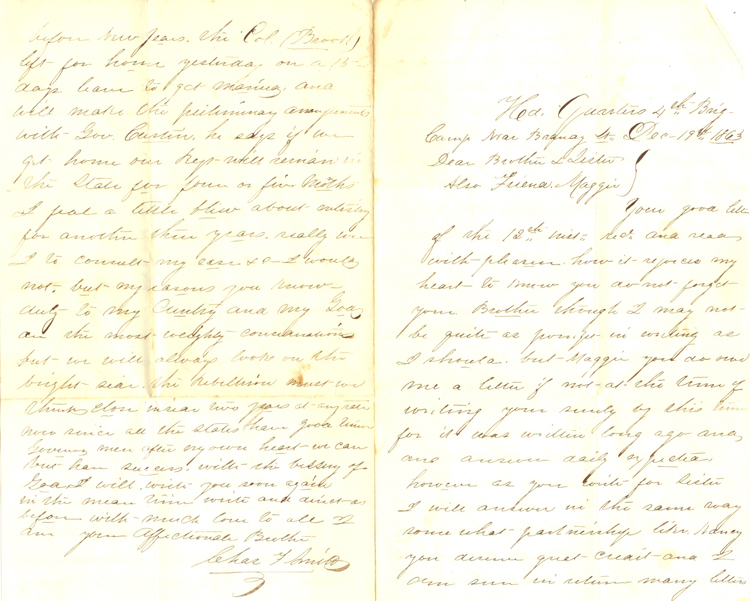 Hd. Quarters 4th Brig-
Camp Near Brandy St. Dec- 19th 1863
Dear Brother & Sister
Also Friend Maggie
Your good letter
of the 12th inst- recd. and read
with pleasure. how it rejoices my
heart to know you do not forget
your Brother though I may not
be quite as prompt in writing as
I should. but Maggie you do owe
me a letter if not at the time of
writing your surely by this time
for it was written long ago and
and answer daily expected
however as you write for Sister
I will answer in the same way
some what partnership like. Nancy
you deserve great credit and I
am sure in return many letters
before New Years. the Col. (Brook)
left for home yesterday on a
days leave to get married, and
will make the preliminary arrangements
with Gov. Curtin. he says if we
get home our Regt will remain in
the State for four or five Moths
I feel a little blew about
for another three years. really were
I to consult my ease &c I would
not, but my reasons you know
duty to my Cuntry and my God
are the most weighty
but we will always looke on the
bright side. the Rebellion must we
think close inside two years at any rate
now since all the states have good
men after my own heart we can
but have success with the blessing of
God. I will write you soon again
in the mean time write and direct as
before with much love to all I
am your Affectionate Brother
Chas F Smith